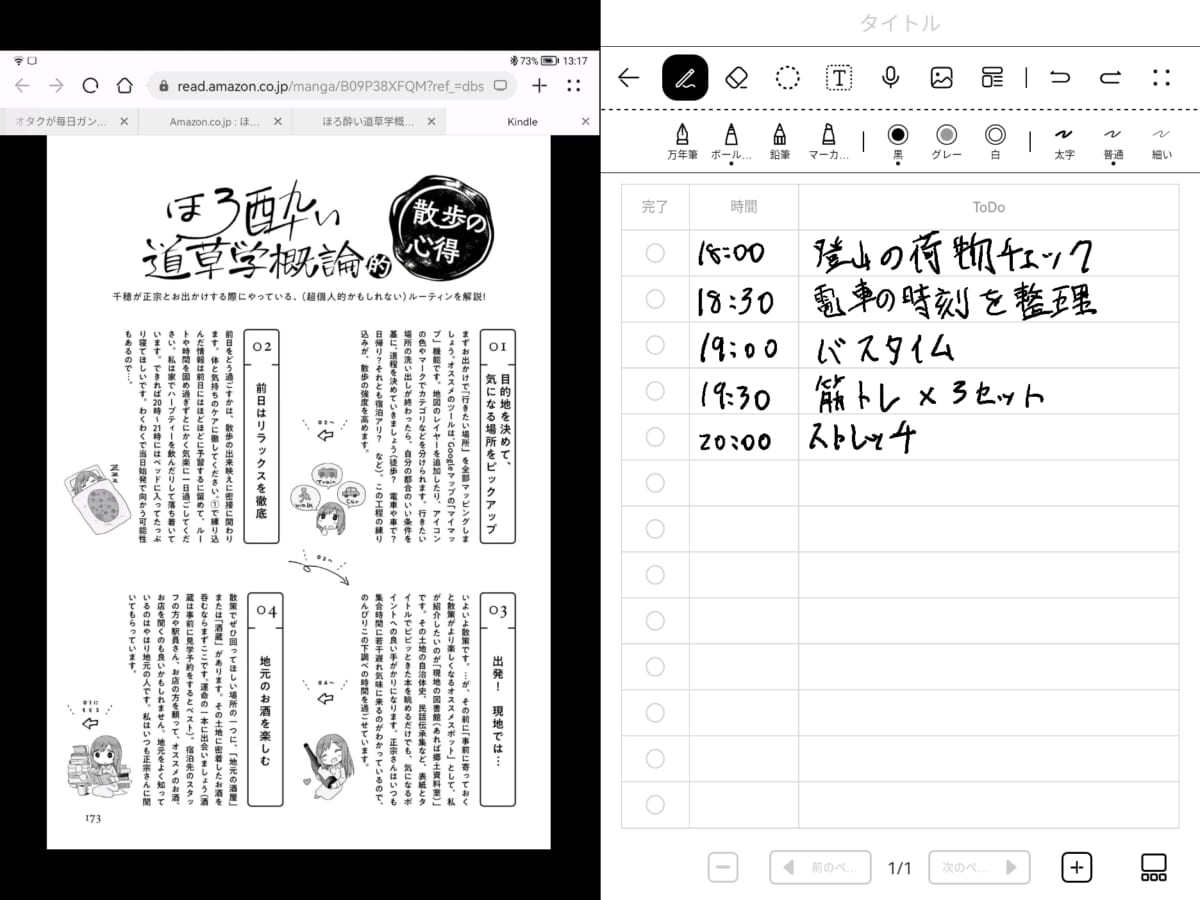 73% 13:17
read.amazon.co.jp/manga/B09P38XFQM?ref_=dbs
オタクが毎日ガン…
Amazon.co.jp : ほ…
ほろ酔い道草学概…
Kindle
ほろ酔い
道草学概論的
散歩の
心得
千穂が正宗とお出かけする際にやっている、(超個人的かもしれない)ルーティンを解説!
01
目的地を決めて、
気になる場所をピックアップ
まずお出かけで「行きたい場所」を全部マッピングしま
しょう。オススメのツールは、Googleマップの「マイマッ
プ」機能です。地図のレイヤーを追加したり、アイコン
の色やマークでカテゴリなどを分けられます。行きたい
場所の洗い出しが終わったら、自分の都合のいい条件を
基に、道程を決めていきましょう(徒歩? 電車や車で?
日帰り?それとも宿泊アリ? など)。この工程の練り
込みが、散歩の強度を高めます。
02へ
Train
walk
Car
02
前日はリラックスを徹底
前日をどう過ごすかは、散歩の出来映えに密接に関わり
ます。体と気持ちのケアに徹してください。①で練り込
んだ情報は前日にはほどほどに予習するに留めて、ルー
トや時間を固め過ぎずとにかく気楽に一日過ごしてくだ
さい。私は家でハーブティーを飲んだりして落ち着いて
います。できれば20時~21時にはベッドに入ってたっぷ
り寝てほしいです。わくわくで当日始発で向かう可能性
もあるので…。
03へ
03
出発! 現地では…
いよいよ散策です。…が、その前に「事前に寄っておく
と散策がより楽しくなるオススメスポット」として、私
が紹介したいのが「現地の図書館(あれば郷土資料室)」
です。その土地の自治体史、民話伝承集など、表紙とタ
イトルでビビッときた本を眺めるだけでも、気になるポ
イントへの良い手がかりになります。正宗さんはいつも
集合時間に若干遅れ気味に来るのがわかっているので、
のんびりこの下調べの時間を過ごせています。
04へ
04
地元のお酒を楽しむ
散策でぜひ回ってほしい場所の一つに、「地元の酒屋」
または「酒蔵」があります。その土地に密着したお酒を
呑むならまずここです。運命の一本に出会いましょう(酒
蔵は事前に見学予約をするとベスト)。宿泊先のスタッ
フの方や駅員さん、お店の方を頼って、オススメのお酒、
お店を聞くのも良いかもしれません。地元をよく知って
いるのはやはり地元の人です。私はいつも正宗さんに聞
いてもらっています。
01に
もどる
173
タイトル
T
万年筆 ボール… 鉛筆 マーカ… 黒 グレー 白 太字 普通 細い
完了 時間 ToDo
18:00 登山の荷物チェック
18:30 電車の時刻を整理
19:00 バスタイム
19:30 筋トレ×3セット
20:00 ストレッチ
前のペ… 1/1 次のペ…